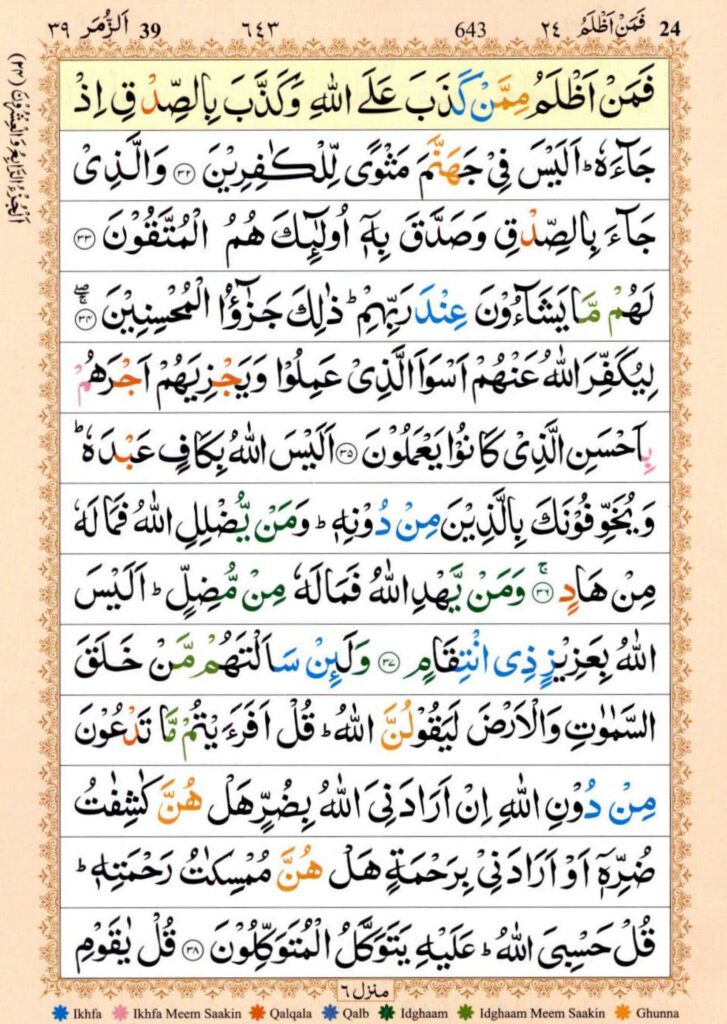 24 فَمَنْ اَظْلَمُ ٢٤ 643 ٦٤٣ 39 اَلزُّمَر ٣٩
اَلْجُزْءُ الرَّابِعُ وَ الْعِشْرُوْنَ (٢٤)
فَمَنْ اَظْلَمُ مِمَّنْ كَذَبَ عَلَى اللّٰهِ وَكَذَّبَ بِالصِّدْقِ اِذْ
جَآءَهٗ ؕ اَلَيْسَ فِيْ جَهَنَّمَ مَثْوًى لِّلْكٰفِرِيْنَ ۝٣٢ وَالَّذِيْ
جَآءَ بِالصِّدْقِ وَصَدَّقَ بِهٖۤ اُولٰٓئِكَ هُمُ الْمُتَّقُوْنَ ۝٣٣
لَهُمْ مَّا يَشَآءُوْنَ عِنْدَ رَبِّهِمْ ؕ ذٰلِكَ جَزٰٓؤُا الْمُحْسِنِيْنَ ۝٣٤
لِيُكَفِّرَ اللّٰهُ عَنْهُمْ اَسْوَاَ الَّذِيْ عَمِلُوْا وَيَجْزِيَهُمْ اَجْرَهُمْ
بِاَحْسَنِ الَّذِيْ كَانُوْا يَعْمَلُوْنَ ۝٣٥ اَلَيْسَ اللّٰهُ بِكَافٍ عَبْدَهٗ ؕ
وَيُخَوِّفُوْنَكَ بِالَّذِيْنَ مِنْ دُوْنِهٖ ؕ وَمَنْ يُّضْلِلِ اللّٰهُ فَمَا لَهٗ
مِنْ هَادٍ ۝٣٦ۚ وَمَنْ يَّهْدِ اللّٰهُ فَمَا لَهٗ مِنْ مُّضِلٍّ ؕ اَلَيْسَ
اللّٰهُ بِعَزِيْزٍ ذِى انْتِقَامٍ ۝٣٧ وَلَئِنْ سَاَلْتَهُمْ مَّنْ خَلَقَ
السَّمٰوٰتِ وَالْاَرْضَ لَيَقُوْلُنَّ اللّٰهُ ؕ قُلْ اَفَرَءَيْتُمْ مَّا تَدْعُوْنَ
مِنْ دُوْنِ اللّٰهِ اِنْ اَرَادَنِىَ اللّٰهُ بِضُرٍّ هَلْ هُنَّ كٰشِفٰتُ
ضُرِّهٖۤ اَوْ اَرَادَنِيْ بِرَحْمَةٍ هَلْ هُنَّ مُمْسِكٰتُ رَحْمَتِهٖ ؕ
قُلْ حَسْبِىَ اللّٰهُ ؕ عَلَيْهِ يَتَوَكَّلُ الْمُتَوَكِّلُوْنَ ۝٣٨ قُلْ يٰقَوْمِ
منزل ٦
Ikhfa Ikhfa Meem Saakin Qalqala Qalb Idghaam Idghaam Meem Saakin Ghunna